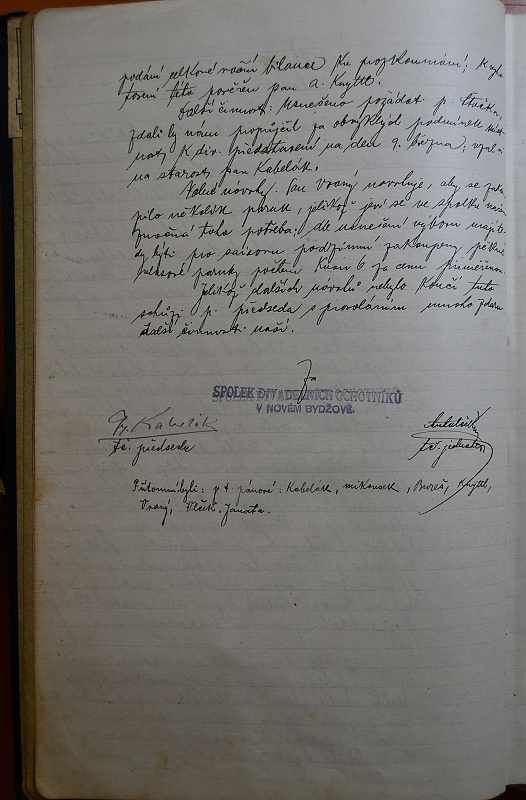 podání celkové roční bilance ku prozkoumání; k vyho-
tovení této pověřen pan A. Knyttl.
Další činnost: Usnešeno požádat p. Stučku,
zdali by nam propůjčil za obvyklých podmínek míst-
nosti k div. představení na den 9. března; vzal si
na starost pan Kabelák.
Volné návrhy. Pan Vraný navrhuje, aby se zakou-
pilo několik paruk, jelikož jeví se ve spolku našem
značná tato potřeba; dle usnešení výboru mají te-
dy býti pro saisonu podzimní zakoupeny pěkné
vlasové paruky počtem kusů 6 za cenu přiměřenou.
Jelikož dalších návrhů nebylo končí tuto
schůzi p. předseda s provoláním mnoho zdaru
další činnosti naší.
Za
SPOLEK DIVADELNÍCH OCHOTNÍKŮ
V NOVÉM BYDŽOVĚ.
Fr. Kabelák
tč. předseda
tč. jednatel
Přítomni byli: p. t. pánové: Kabelák, Mikousek, Bureš, Knyttl,
Vraný, Vlček, Janata.